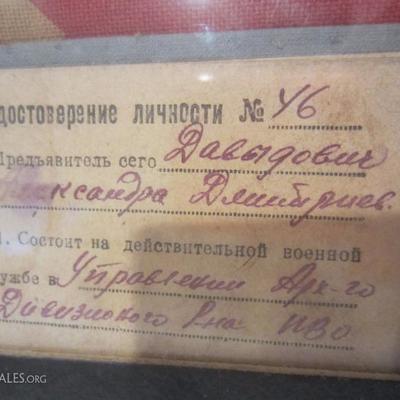 достоверение личности № 46
Предъявитель сего Давыдович
Александра Дмитриев.
1. Состоит на действительной военной
ужбе в Управлении Арх-го
Дивизионого Р-на ПВО
ALES.ORG